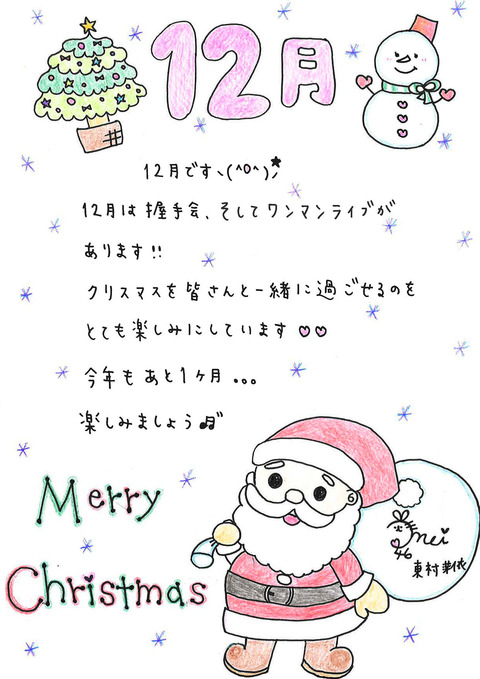 12月
12月ですヽ(^o^)ﾉ
12月は握手会、そしてワンマンライブが
あります!!
クリスマスを皆さんと一緒に過ごせるのを
とても楽しみにしています♡♡
今年もあと1ヶ月...
楽しみましょう♬
Merry
Christmas
mei
46
東村芽依